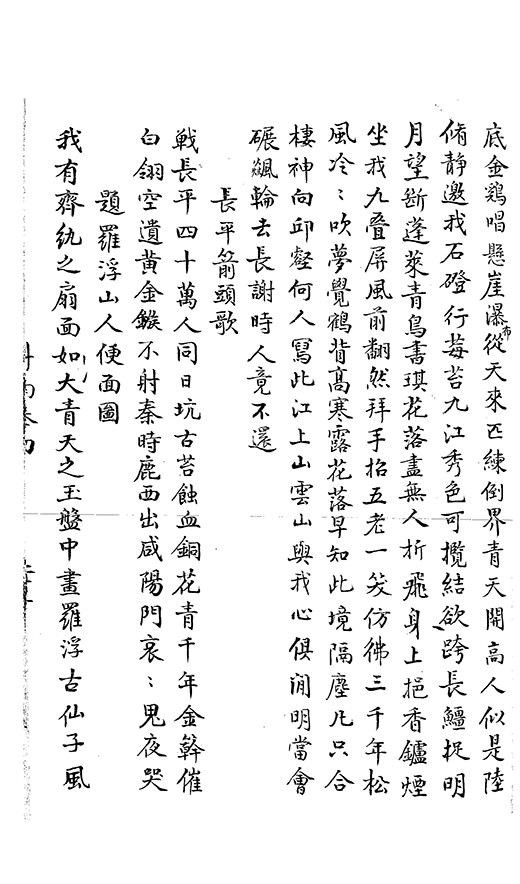 底金鷄唱懸崖瀑布從天來匹練倒界青天開高人似是陸
脩静邀我石磴行莓苔九江秀色可攬結欲跨長鱷捉明
月望斷蓬萊青鳥書琪花落盡無人折飛身上挹香鑪煙
坐我九疊屏風前翻然拜手招五老一笑仿彿三千年松
風冷〻吹夢覺鶴背高寒露花落早知此境隔塵凡只合
棲神向邱壑何人寫此江上山雲山與我心俱閒明當會
碾飆輪去長謝時人竟不還
長平箭頭歌
戰長平四十萬人同日坑古苔蝕血銅花青千年金簳催
白翎空遺黄金鏃不射秦時鹿西出咸陽門哀〻鬼夜哭
題羅浮山人便面圖
我有齊紈之扇面如大青天之玉盤中畫羅浮古仙子風